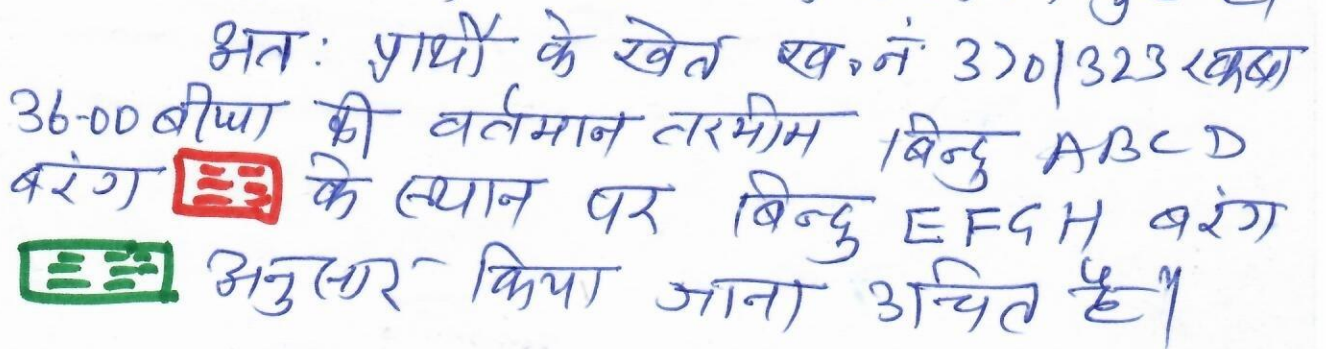 अतः प्रार्थी के खेत ख.नं 370/323 रकबा
36-00 बीघा की वर्तमान तरमीम बिन्दु ABCD
बरंग के स्थान पर बिन्दु EFGH बरंग
अनुसार किया जाना उचित है।